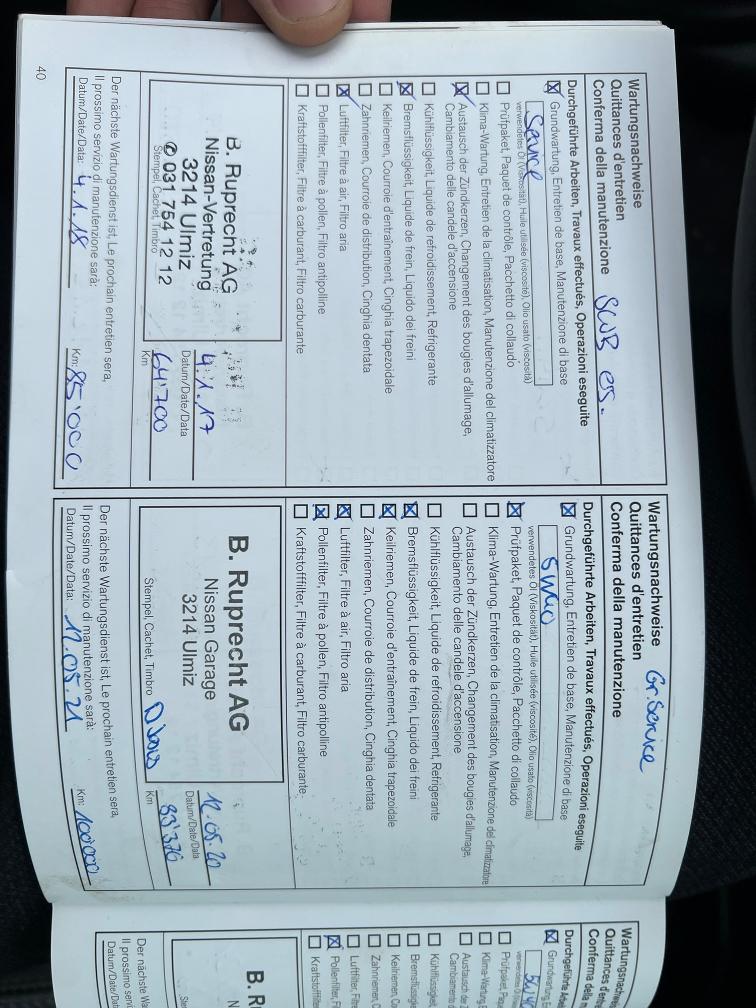 Wartungsnachweise
Quittances d'entretien
Conferma della manutenzione
Durchgeführte Arbeiten, Travaux effectués, Operazioni eseguite
☒ Grundwartung, Entretien de base, Manutenzione di base
Service
verwendetes Öl (Viskosität), Huile utilisée (viscosité), Olio usato (viscosità)
☐ Prüfpaket, Paquet de contrôle, Pacchetto di collaudo
☐ Klima-Wartung, Entretien de la climatisation, Manutenzione del climatizzatore
☒ Austausch der Zündkerzen, Changement des bougies d'allumage,
Cambiamento delle candele d'accensione
☐ Kühlflüssigkeit, Liquide de refroidissement, Refrigerante
☒ Bremsflüssigkeit, Liquide de frein, Liquido dei freini
☐ Keilriemen, Courroie d'entraînement, Cinghia trapezoidale
☐ Zahnriemen, Courroie de distribution, Cinghia dentata
☒ Luftfilter, Filtre à air, Filtro aria
☐ Pollenfilter, Filtre à pollen, Filtro antipolline
☐ Kraftstofffilter, Filtre à carburant, Filtro carburante
B. Ruprecht AG
Nissan-Vertretung
3214 Ulmiz
✆ 031 754 12 12
Stempel, Cachet, Timbro
4.1.17
Datum/Date/Data
64'700
Km
Der nächste Wartungsdienst ist, Le prochain entretien sera,
Il prossimo servizio di manutenzione sarà:
Datum/Date/Data: 4.1.18 Km: 85'000
40
Wartungsnachweise Gr. Service
Quittances d'entretien
Conferma della manutenzione
Durchgeführte Arbeiten, Travaux effectués, Operazioni eseguite
☒ Grundwartung, Entretien de base, Manutenzione di base
verwendetes Öl (Viskosität), Huile utilisée (viscosité), Olio usato (viscosità)
☒ Prüfpaket, Paquet de contrôle, Pacchetto di collaudo
☐ Klima-Wartung, Entretien de la climatisation, Manutenzione del climatizzatore
☐ Austausch der Zündkerzen, Changement des bougies d'allumage,
Cambiamento delle candele d'accensione
☐ Kühlflüssigkeit, Liquide de refroidissement, Refrigerante
☒ Bremsflüssigkeit, Liquide de frein, Liquido dei freini
☒ Keilriemen, Courroie d'entraînement, Cinghia trapezoidale
☐ Zahnriemen, Courroie de distribution, Cinghia dentata
☒ Luftfilter, Filtre à air, Filtro aria
☒ Pollenfilter, Filtre à pollen, Filtro antipolline
☐ Kraftstofffilter, Filtre à carburant, Filtro carburante
B. Ruprecht AG
Nissan Garage
3214 Ulmiz
Stempel, Cachet, Timbro
12.05.20
Datum/Date/Data
83'376
Km
Der nächste Wartungsdienst ist, Le prochain entretien sera,
Il prossimo servizio di manutenzione sarà:
Datum/Date/Data: 12.05.21 Km: 100'000
Wartungsnachweise
Quittances
Conferma della
Durchgeführte
☒ Grundwartung
☐ Prüfpaket,
☐ Klima-Wartung
☐ Austausch
☐ Kühlflüssigkeit
☐ Bremsflüssig
☐ Keilriemen,
☐ Zahnriemen,
☐ Luftfilter,
☒ Pollenfilter,
☐ Kraftstofffilter
Der nächste Wa
Il prossimo serv
Datum/Date/Da